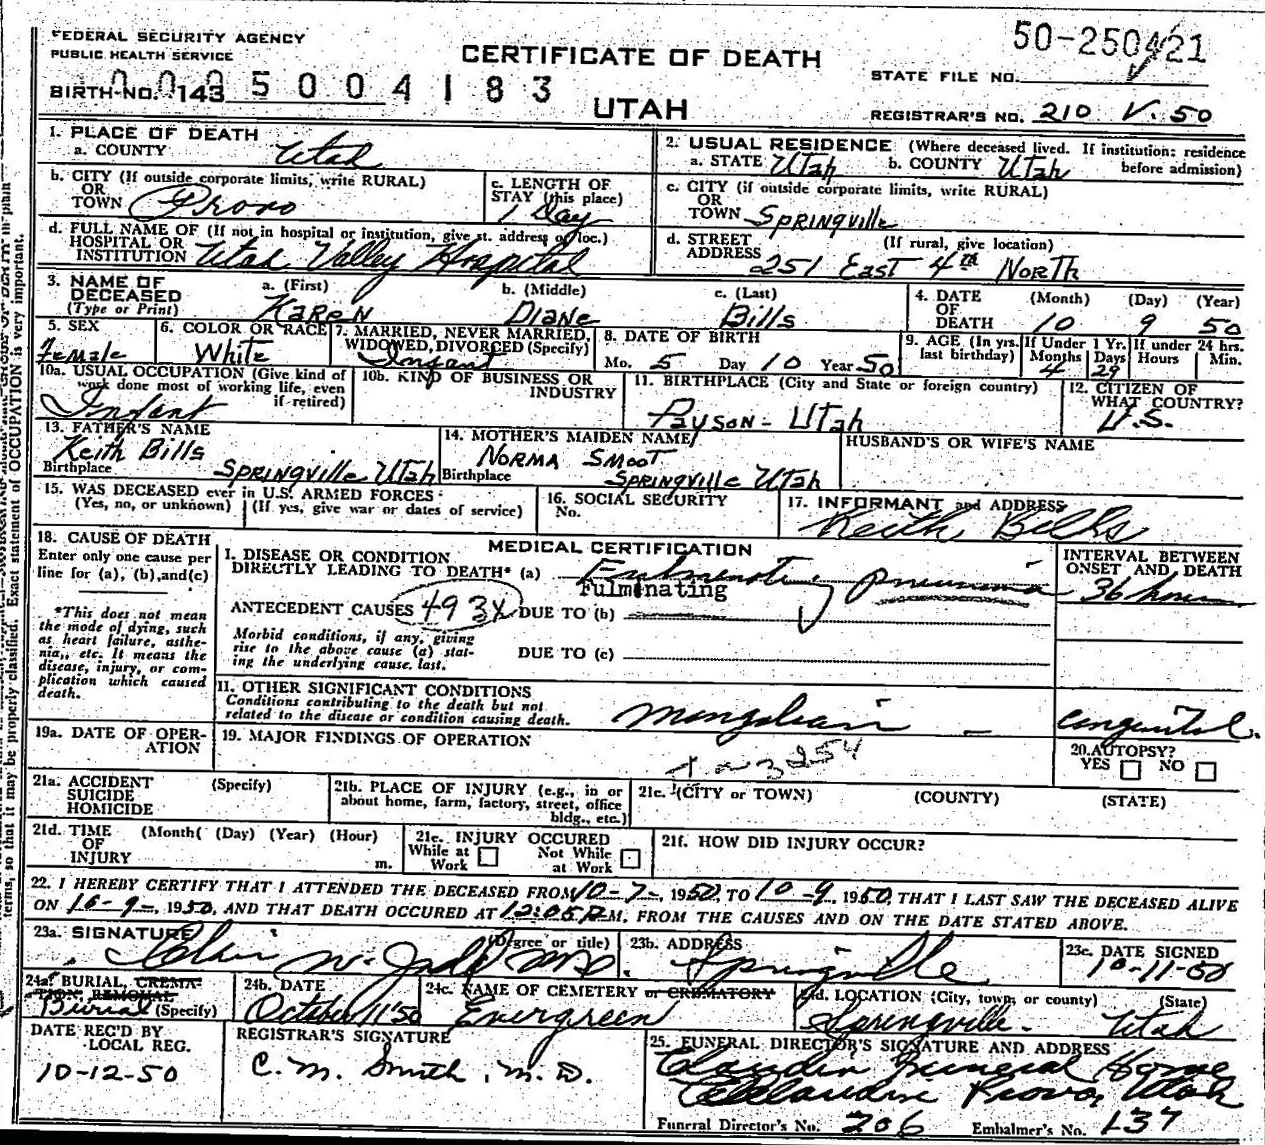 FEDERAL SECURITY AGENCY
PUBLIC HEALTH SERVICE
CERTIFICATE OF DEATH
50-250421
STATE FILE NO.
BIRTH NO. 143 5004183
UTAH
REGISTRAR'S NO. 210 V. 50
1. PLACE OF DEATH
a. COUNTY Utah
2. USUAL RESIDENCE (Where deceased lived. If institution: residence before admission)
a. STATE Utah b. COUNTY Utah
b. CITY (If outside corporate limits, write RURAL)
OR
TOWN Provo
c. LENGTH OF
STAY (this place)
1 Day
c. CITY (if outside corporate limits, write RURAL)
OR
TOWN Springville
d. FULL NAME OF (If not in hospital or institution, give st. address or loc.)
HOSPITAL OR
INSTITUTION Utah Valley Hospital
d. STREET (If rural, give location)
ADDRESS 251 East 4th North
3. NAME OF
DECEASED
(Type or Print)
a. (First) Karen
b. (Middle) Diane
c. (Last) Bills
4. DATE (Month) (Day) (Year)
OF
DEATH 10 9 50
5. SEX
Female
6. COLOR OR RACE
White
7. MARRIED, NEVER MARRIED,
WIDOWED, DIVORCED (Specify)
Infant
8. DATE OF BIRTH
Mo. 5 Day 10 Year 50
9. AGE (In yrs. last birthday)
If Under 1 Yr.
Months 4 Days 29
If under 24 hrs.
Hours Min.
10a. USUAL OCCUPATION (Give kind of
work done most of working life, even
if retired)
Infant
10b. KIND OF BUSINESS OR
INDUSTRY
11. BIRTHPLACE (City and State or foreign country)
Payson - Utah
12. CITIZEN OF
WHAT COUNTRY?
U.S.
13. FATHER'S NAME
Keith Bills
Birthplace Springville Utah
14. MOTHER'S MAIDEN NAME
Norma Smoot
Birthplace Springville Utah
HUSBAND'S OR WIFE'S NAME
15. WAS DECEASED ever in U.S. ARMED FORCES
(Yes, no, or unknown) (If yes, give war or dates of service)
16. SOCIAL SECURITY
No.
17. INFORMANT and ADDRESS
Keith Bills
18. CAUSE OF DEATH
Enter only one cause per
line for (a), (b), and (c)
*This does not mean
the mode of dying, such
as heart failure, asthe-
nia, etc. It means the
disease, injury, or com-
plication which caused
death.
MEDICAL CERTIFICATION
I. DISEASE OR CONDITION
DIRECTLY LEADING TO DEATH* (a) Fulminating pneumonia
Fulminating
INTERVAL BETWEEN
ONSET AND DEATH
36 hours
ANTECEDENT CAUSES 493X DUE TO (b)
Morbid conditions, if any, giving
rise to the above cause (a) stat-
ing the underlying cause last.
DUE TO (c)
II. OTHER SIGNIFICANT CONDITIONS
Conditions contributing to the death but not
related to the disease or condition causing death.
Mongolian - congenital.
19a. DATE OF OPER-
ATION
19. MAJOR FINDINGS OF OPERATION
3254
20. AUTOPSY?
YES NO
21a. ACCIDENT (Specify)
SUICIDE
HOMICIDE
21b. PLACE OF INJURY (e.g., in or
about home, farm, factory, street, office
bldg., etc.)
21c. (CITY or TOWN) (COUNTY) (STATE)
21d. TIME (Month) (Day) (Year) (Hour)
OF
INJURY m.
21e. INJURY OCCURED
While at Work Not While at Work
21f. HOW DID INJURY OCCUR?
22. I HEREBY CERTIFY THAT I ATTENDED THE DECEASED FROM 10-7-, 1950, TO 10-9, 1950, THAT I LAST SAW THE DECEASED ALIVE
ON 10-9-, 1950, AND THAT DEATH OCCURED AT 12:05 P.M., FROM THE CAUSES AND ON THE DATE STATED ABOVE.
23a. SIGNATURE (Degree or title)
W. Judd MD.
23b. ADDRESS
Springville
23c. DATE SIGNED
10-11-50
24a. BURIAL, CREMA-
TION, REMOVAL
Burial (Specify)
24b. DATE
October 11 '50
24c. NAME OF CEMETERY or CREMATORY
Evergreen
24d. LOCATION (City, town, or county) (State)
Springville - Utah
DATE REC'D BY
LOCAL REG.
10-12-50
REGISTRAR'S SIGNATURE
C. M. Smith, M.D.
25. FUNERAL DIRECTOR'S SIGNATURE AND ADDRESS
Claudin Funeral Home
Provo, Utah
Funeral Director's No. 206 Embalmer's No. 137
terms, so that it may be properly classified. Exact statement of OCCUPATION is very important.